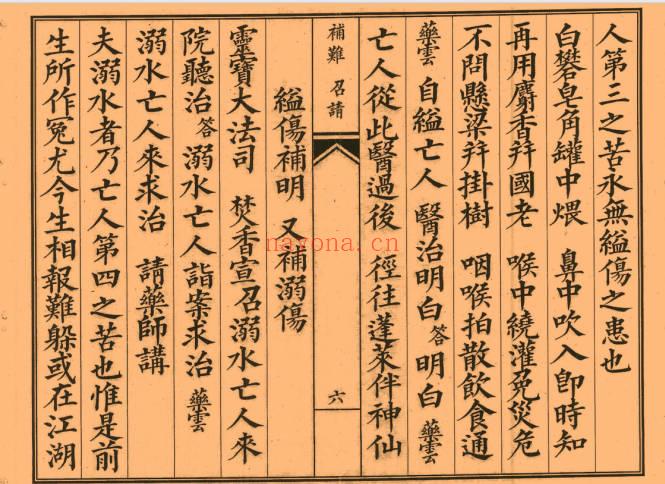 人第三之苦永無縊傷之患也
白礬皂角罐中煨　鼻中吹入卽時知
再用麝香幷國老　喉中繞灌免災危
不問懸梁幷掛樹　咽喉拍散飲食通
藥雲　自縊亡人　醫治明白　答　明白　藥雲
亡人從此醫過後　徑往蓬萊伴神仙
補難　召請
六
縊傷補明　又補溺傷
靈寶大法司　焚香宣召溺水亡人來
院聽治　答　溺水亡人詣案求治　藥雲
溺水亡人來求治　請藥師講
夫溺水者乃亡人第四之苦也惟是前
生所作冤尤今生相報難躲或在江湖
nayona.cn